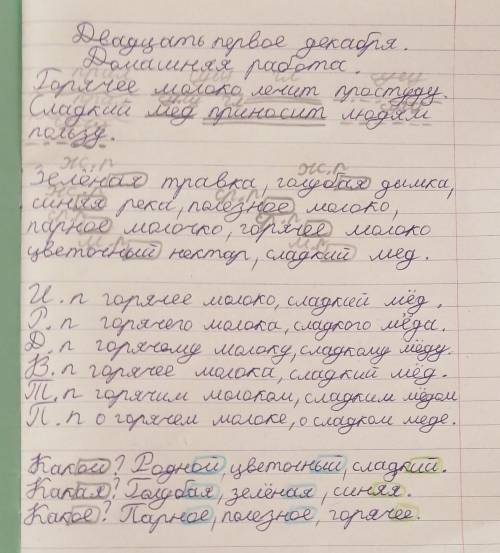 Двадцать первое декабря.
Домашняя работа.
Горячее молоко лечит простуду.
Сладкий мёд приносит людям
пользу.
ж.р ж.р
Зелёная травка, голубая дымка,
синяя река, полезное молоко,
парное молочко, горячее молоко
цветочный нектар, сладкий мед.
И. п горячее молоко, сладкий мёд.
Р. п горячего молока, сладкого мёда.
Д. п горячему молоку, сладкому мёду.
В. п горячее молока, сладкий мёд.
Т. п горячим молоком, сладким мёдом
П. п о горячем молоке, о сладком меде.
Какой? Родной, цветочный, сладкий.
Какая? Голубая, зелёная, синяя.
Какое? Парное, полезное, горячее.